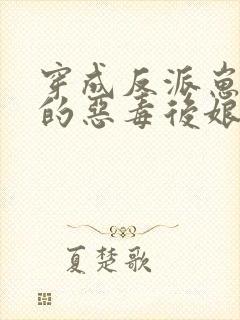 穿成反派崽
的惡毒後娘
夏楚歌